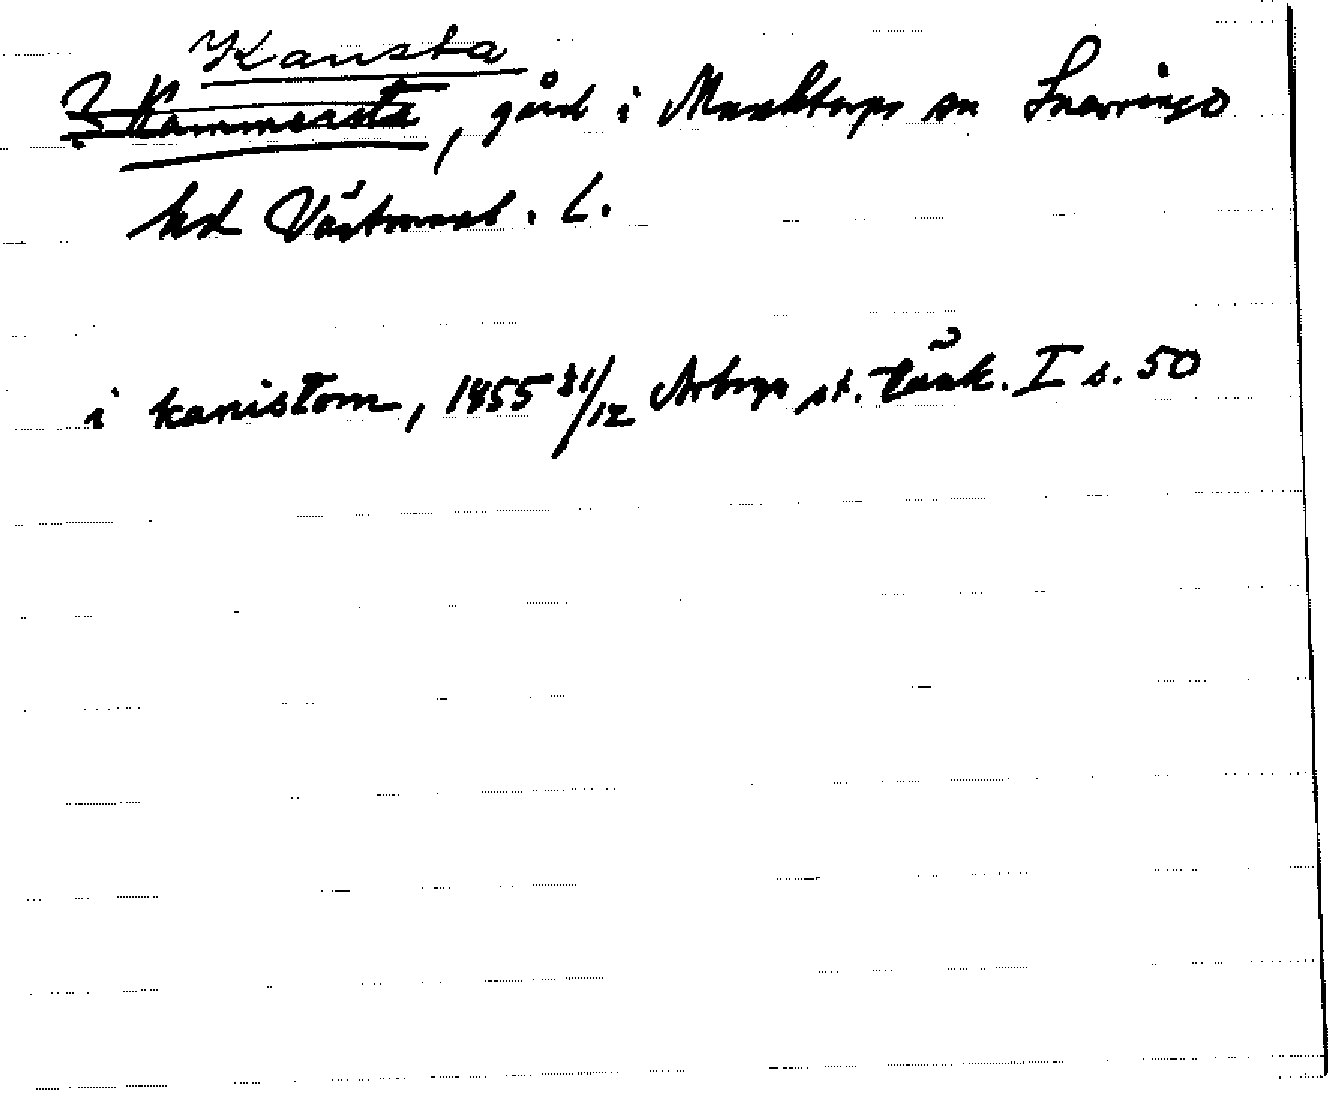 Kansta
? Kammersta, gård i Munktorps sn Snevringe
hd Västmanl. L.
i kanistom, 1455 31/12 Arboga st. tänk. I s. 50